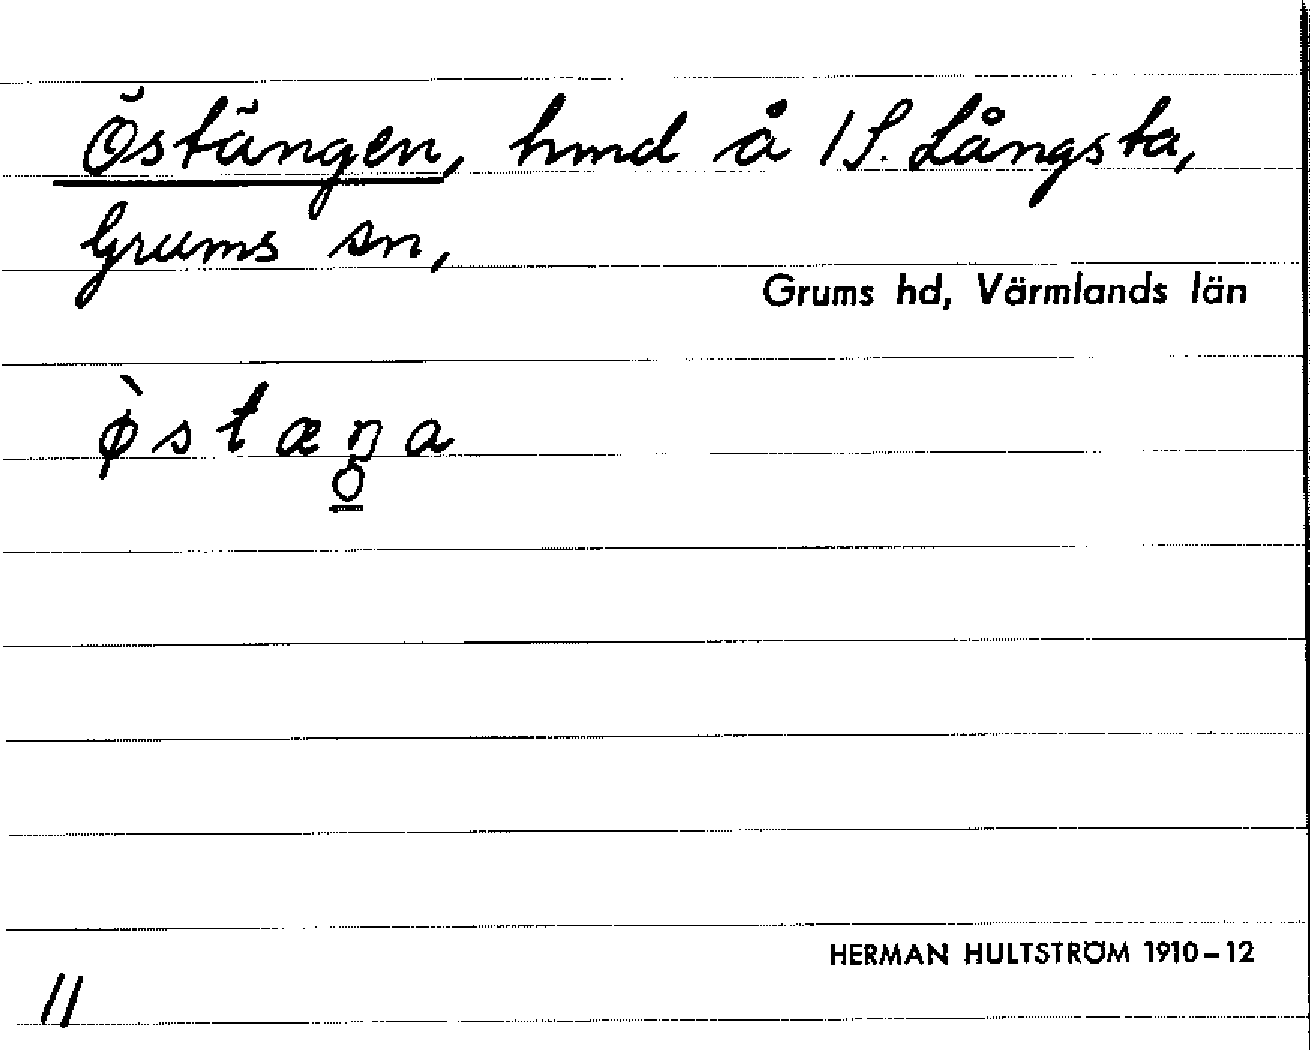 Östängen, hmd å 1 S. Långsta,
Grums sn,
Grums hd, Värmlands län
ø̀stæŋa
HERMAN HULTSTRÖM 1910-12
11